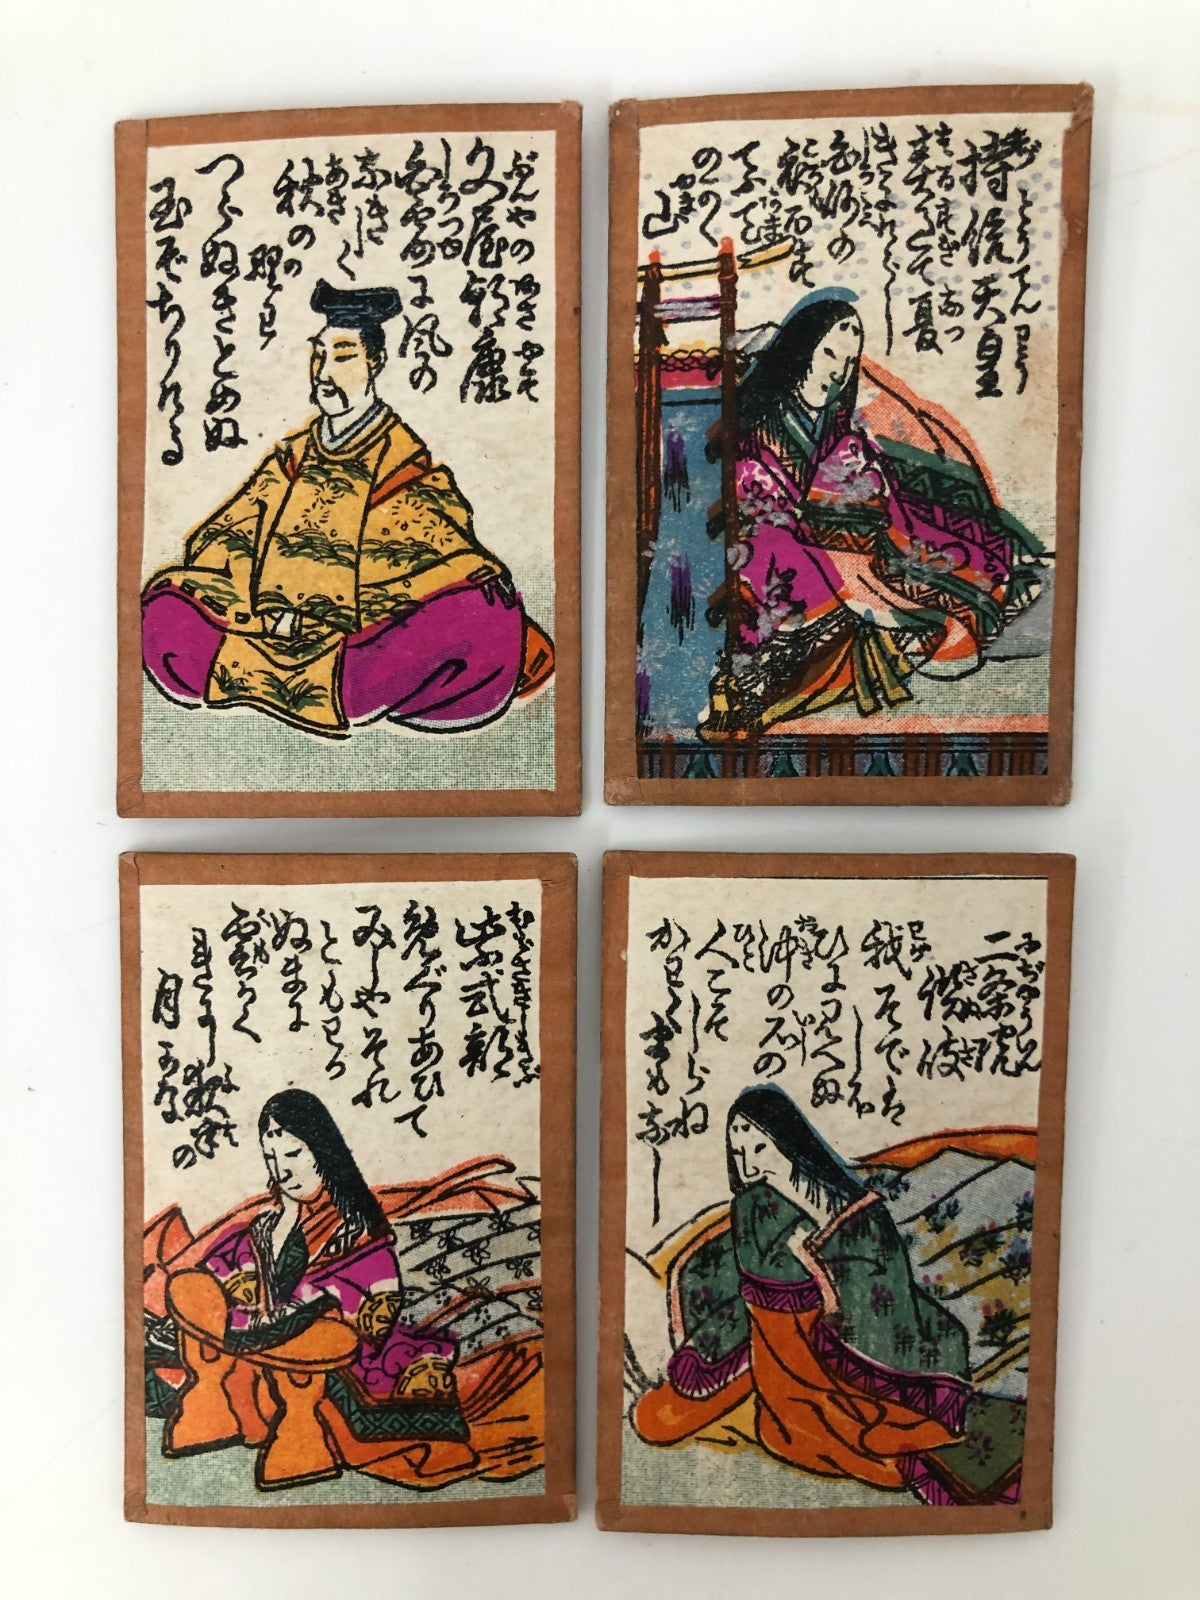 ぶんやのあさやす
文屋朝康
しらつゆ
白露に風の
ふきしく
あき
秋の
野は
つらぬきとめぬ
玉ぞちりける
ぢとうてんわう
持統天皇
はるすぎ なつ
春過て夏
きにけらし
しろたへ
白妙の
ころも
衣ほす
てふ
のかく
やま
山
むらさきしきぶ
紫式部
めぐりあひて
みしやそれ
ともわか
ぬまに
くも
雲かく
れにし夜半の
月かな
にぢやうゐん
二条院
さぬき
讃岐
わが
我そでは
しほ
ひに見へぬ
おき いし
沖の石の
ひと
人こそ
しらね
かわく
まもなし